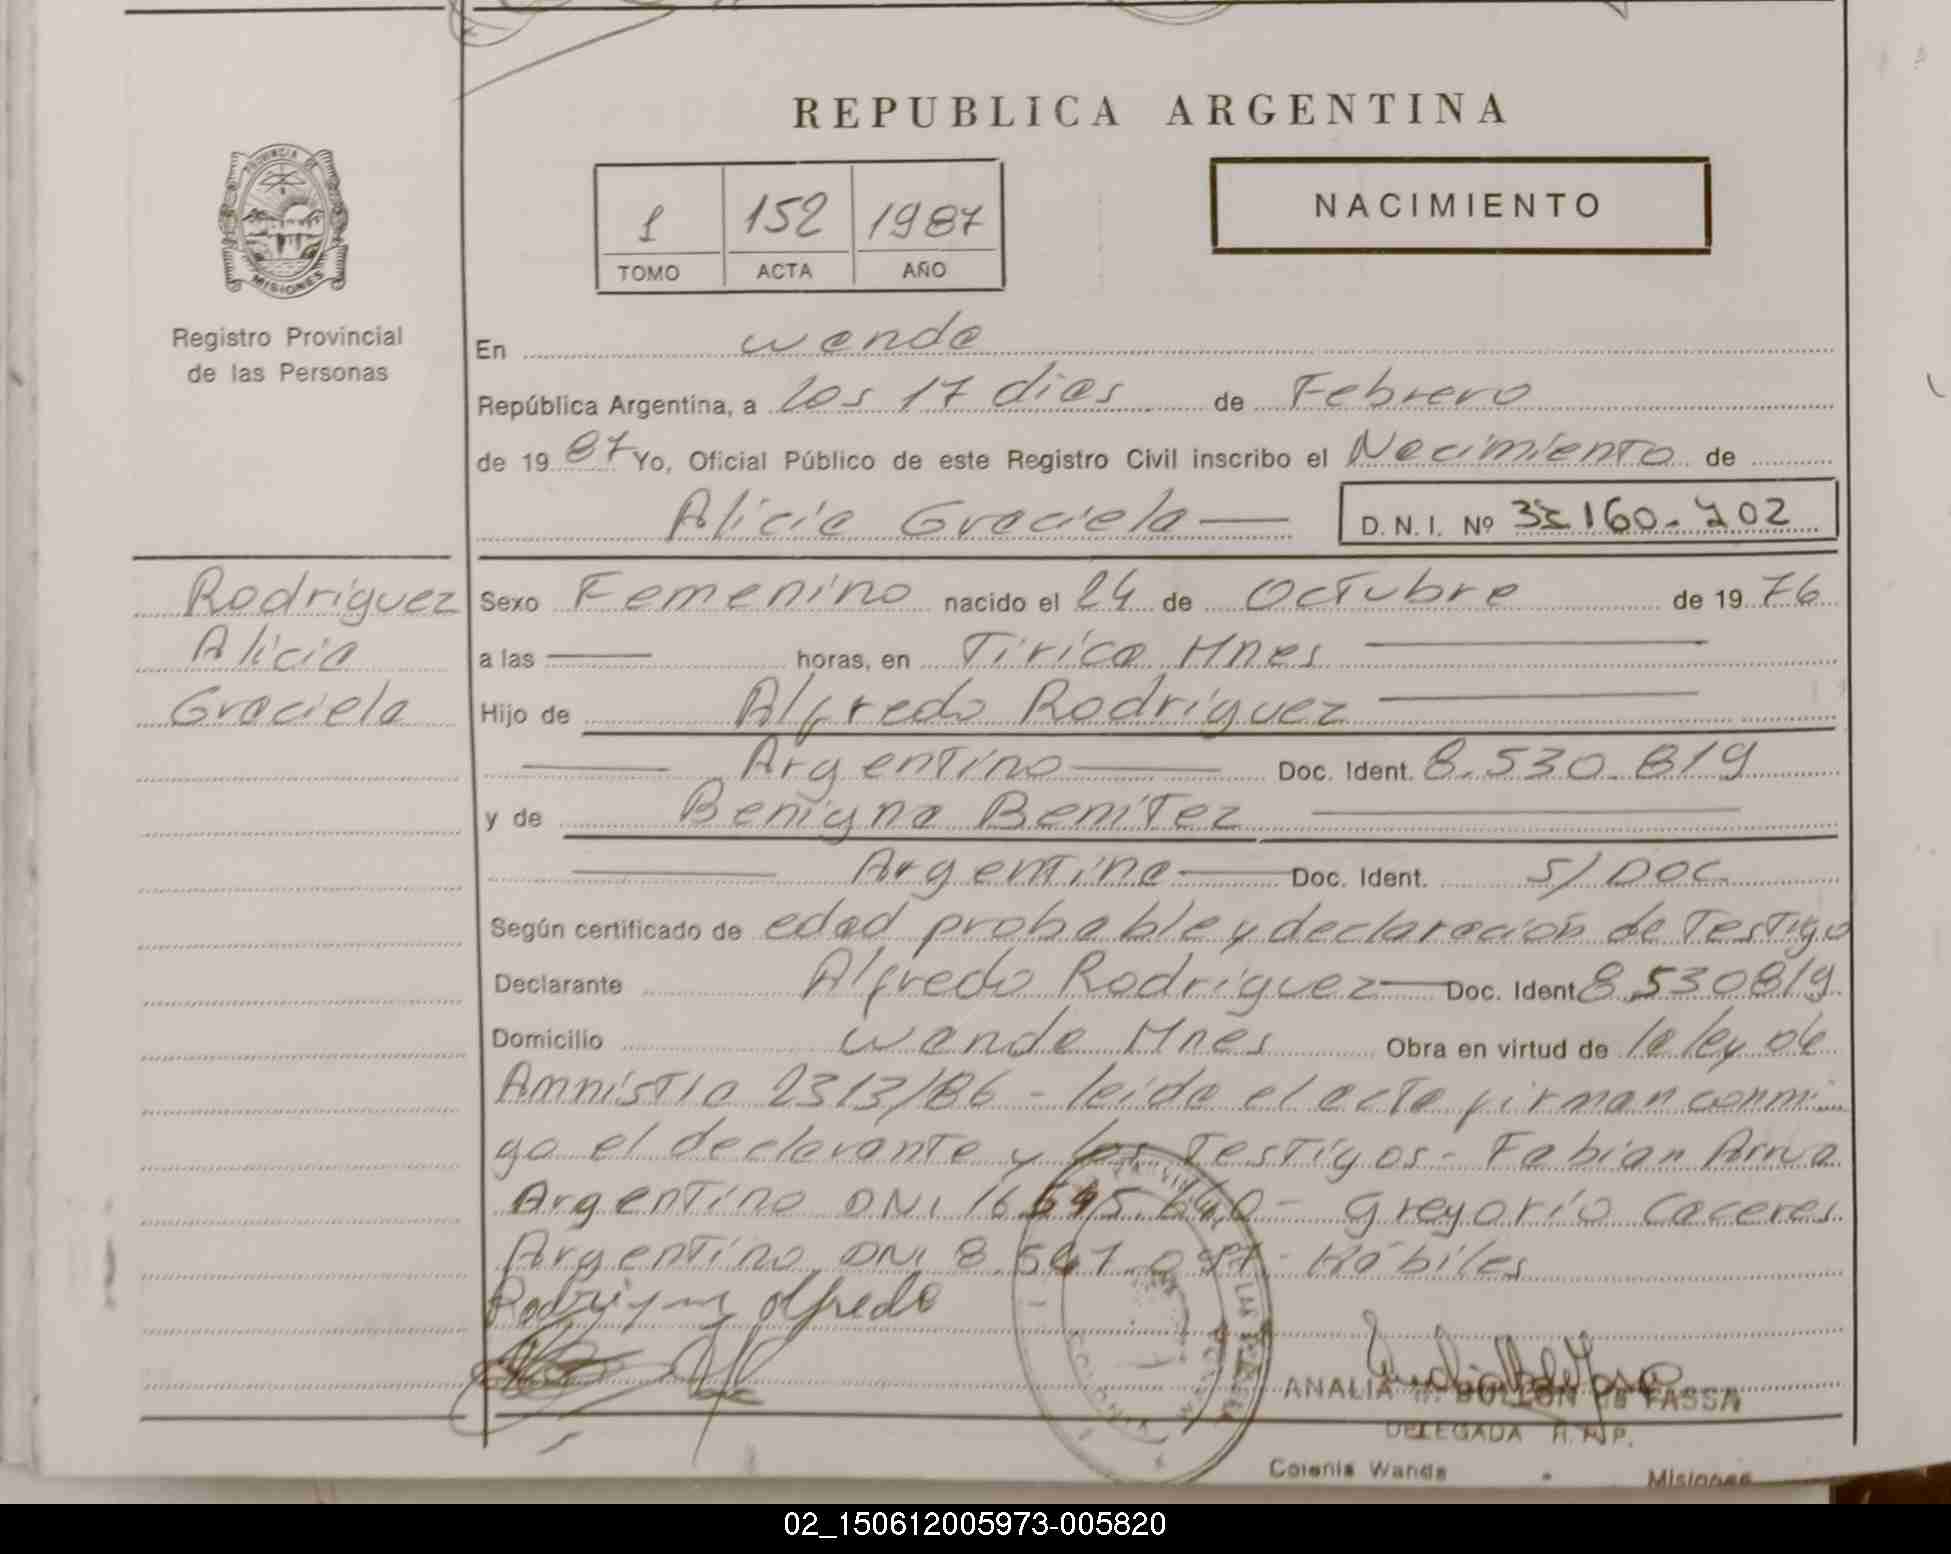 REPUBLICA ARGENTINA
PROVINCIA DE
MISIONES
Registro Provincial
de las Personas
1 152 1987
TOMO ACTA AÑO
NACIMIENTO
En Wanda
República Argentina, a los 17 dias de Febrero
de 19 87 Yo, Oficial Público de este Registro Civil inscribo el Nacimiento de
Alicia Graciela
D. N. I. Nº 160.702
Rodriguez
Alicia
Graciela
Sexo Femenino nacido el 24 de Octubre de 19 76
a las horas, en Tirica Mnes
Hijo de Alfredo Rodriguez
Argentino Doc. Ident. 8.530.819
y de Benigna Benitez
Argentina Doc. Ident. S/DOC
Según certificado de edad probable y declaración de Testigo
Declarante Alfredo Rodriguez Doc. Ident. 8.530819
Domicilio Wanda Mnes Obra en virtud de la ley de
Amnistia 2313/86 - leida el acta firman conmi
go el declarante y los Testigos - Fabian
Argentino DNI 16. - Gregorio Caceres
Argentino DNI 8. - Hábiles
Rodriguez Alfredo
ANALIA DE FASSA
DELEGADA R. N. P.
Colonia Wanda Misiones
02_150612005973-005820